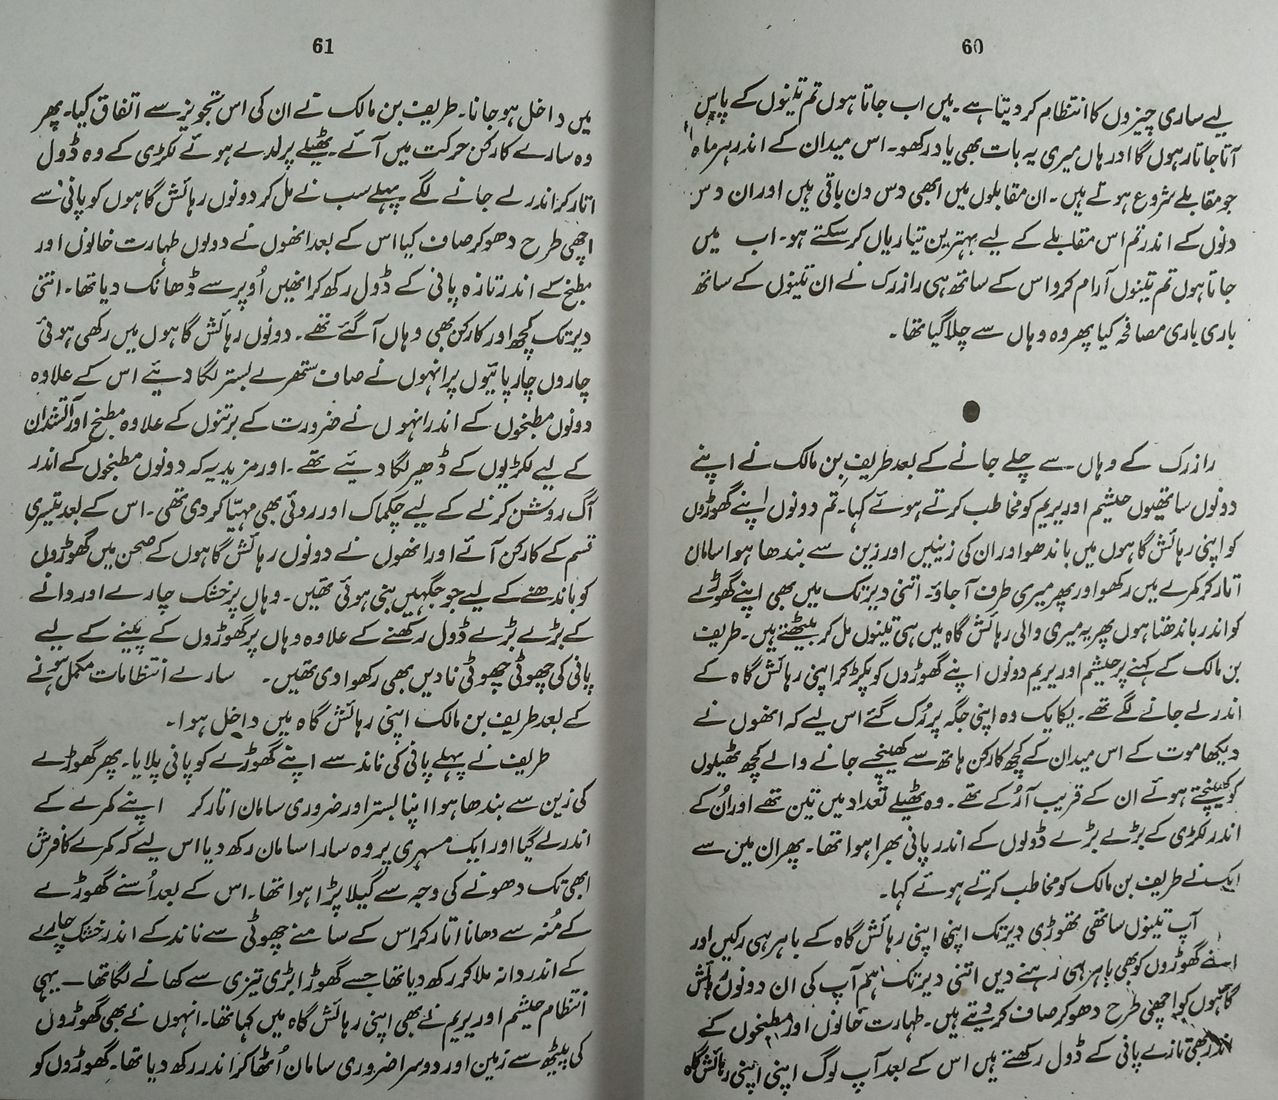 60
لیے ساری چیزوں کا انتظام کر دیتا ہے۔ میں اب جاتا ہوں تم تینوں کے پاس
آتا جاتا رہوں گا اور ہاں میری یہ بات بھی یاد رکھو۔ اس میدان کے اندر ہر ماہ
جو مقابلے شروع ہوتے ہیں۔ ان مقابلوں میں ابھی دس دن باقی ہیں اور ان دس
دنوں کے اندر تم اس مقابلے کے لیے بہترین تیاریاں کر سکتے ہو۔ اب میں
جاتا ہوں تم تینوں آرام کرو اس کے ساتھ ہی رازرک نے ان تینوں کے ساتھ
باری باری مصافحہ کیا پھر وہ وہاں سے چلا گیا تھا۔
رازرک کے وہاں سے چلے جانے کے بعد طریف بن مالک نے اپنے
دونوں ساتھیوں حیشم اور یریم کو مخاطب کرتے ہوئے کہا۔ تم دونوں اپنے گھوڑوں
کو اپنی رہائش گاہوں میں باندھو اور ان کی زینیں اور زین سے بندھا ہوا سامان
اتار کر کمرے میں رکھو اور پھر میری طرف آ جاؤ۔ اتنی دیر تک میں بھی اپنے گھوڑے
کو اندر باندھتا ہوں پھر یہ میری والی رہائش گاہ میں ہی تینوں مل کر بیٹھتے ہیں۔ طریف
بن مالک کے کہنے پر حیشم اور یریم دونوں اپنے گھوڑوں کو پکڑ کر اپنی رہائش گاہ کے
اندر لے جانے لگے تھے۔ یکایک وہ اپنی جگہ پر رُک گئے اس لیے کہ انھوں نے
دیکھا موت کے اس میدان کے کچھ کارکن ہاتھ سے کھینچے جانے والے کچھ ٹھیلوں
کو کھینچتے ہوئے ان کے قریب آ رُکے تھے۔ وہ ٹھیلے تعداد میں تین تھے اور اُن کے
اندر لکڑی کے بڑے بڑے ڈولوں کے اندر پانی بھرا ہوا تھا۔ پھر ان میں سے
ایک نے طریف بن مالک کو مخاطب کرتے ہوئے کہا۔
آپ تینوں ساتھی تھوڑی دیر تک اپنی اپنی رہائش گاہ کے باہر ہی رکیں اور
اپنے گھوڑوں کو بھی باہر ہی رہنے دیں اتنی دیر تک ہم آپ کی ان دونوں رہائش
گاہوں کو اچھی طرح دھو کر صاف کر دیتے ہیں۔ طہارت خانوں اور مطبخوں کے
اندر بھی تازے پانی کے ڈول رکھتے ہیں اس کے بعد آپ لوگ اپنی اپنی رہائش گاہ
61
میں داخل ہو جانا۔ طریف بن مالک نے ان کی اس تجویز سے اتفاق کیا۔ پھر
وہ سارے کارکن حرکت میں آئے۔ ٹھیلے پر لدے ہوئے لکڑی کے وہ ڈول
اتار کر اندر لے جانے لگے پہلے سب نے مل کر دونوں رہائش گاہوں کو پانی سے
اچھی طرح دھو کر صاف کیا اس کے بعد انھوں نے دونوں طہارت خانوں اور
مطبخ کے اندر تازہ پانی کے ڈول رکھ کر انھیں اُوپر سے ڈھانک دیا تھا۔ اتنی
دیر تک کچھ اور کارکن بھی وہاں آ گئے تھے۔ دونوں رہائش گاہوں میں رکھی ہوئی
چاروں چارپائیوں پر انہوں نے صاف ستھرے بستر لگا دیئے اس کے علاوہ
دونوں مطبخوں کے اندر انہوں نے ضرورت کے برتنوں کے علاوہ مطبخ اور آتشدان
کے لیے لکڑیوں کے ڈھیر لگا دیئے تھے۔ اور مزید یہ کہ دونوں مطبخوں کے اندر
آگ روشن کرنے کے لیے چکماک اور روئی بھی مہیّا کر دی تھی۔ اس کے بعد تیسری
قسم کے کارکن آئے اور انھوں نے دونوں رہائش گاہوں کے صحن میں گھوڑوں
کو باندھنے کے لیے جو جگہیں بنی ہوئی تھیں۔ وہاں پر خشک چارے اور دانے
کے بڑے بڑے ڈول رکھنے کے علاوہ وہاں پر گھوڑوں کے پینے کے لیے
پانی کی چھوٹی چھوٹی نادیں بھی رکھوا دی تھیں۔ سارے انتظامات مکمل ہونے
کے بعد طریف بن مالک اپنی رہائش گاہ میں داخل ہوا۔
طریف نے پہلے پانی کی ناند سے اپنے گھوڑے کو پانی پلایا۔ پھر گھوڑے
کی زین سے بندھا ہوا اپنا بستر اور ضروری سامان اتار کر اپنے کمرے کے
اندر لے گیا اور ایک مسہری پر وہ سارا سامان رکھ دیا اس لیے کہ کمرے کا فرش
ابھی تک دھونے کی وجہ سے گیلا پڑا ہوا تھا۔ اس کے بعد اُسنے گھوڑے
کے مُنہ سے دھانا اتار کر اس کے سامنے چھوٹی سے ناند کے اندر خشک چارے
کے اندر دانہ ملا کر رکھ دیا تھا جسے گھوڑا بڑی تیزی سے کھانے لگا تھا۔ یہی
انتظام حیشم اور یریم نے بھی اپنی رہائش گاہ میں کیا تھا۔ انہوں نے بھی گھوڑوں
کی پیٹھ سے زین اور دوسرا ضروری سامان اُٹھا کر اندر رکھ دیا تھا۔ گھوڑوں کو